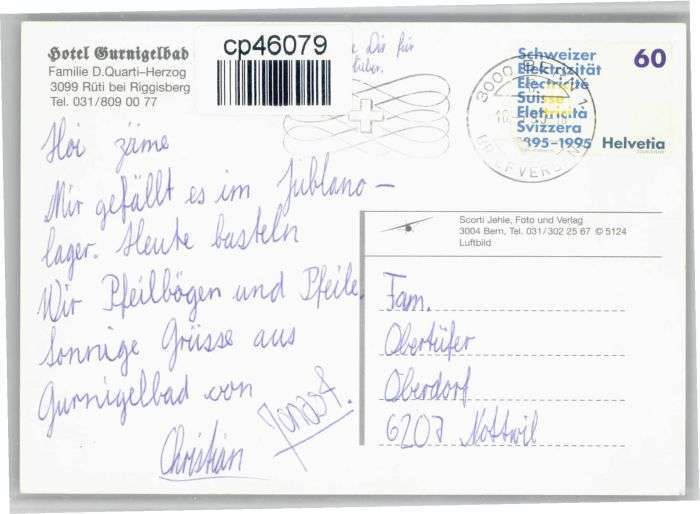 Hotel Gurnigelbad
Familie D.Quarti–Herzog
3099 Rüti bei Riggisberg
Tel. 031/809 00 77
cp46079
Die für
Hoi zäme
Mir gefällt es im Jublano–
lager. Heute basteln
Wir Pfeilbögen und Pfeile.
Sonnige Grüsse aus
Gurnigelbad von
Christian Jonas f.
Schweizer
Elektrizität
Electricité
Suisse
Elettricità
Svizzera
1895–1995
60
Helvetia
3000 BERN 1
BRIEFVERSAND
Scorti Jehle, Foto und Verlag
3004 Bern, Tel. 031/302 25 67 © 5124
Luftbild
Fam.
Obertüfer
Oberdorf
6207 Nottwil